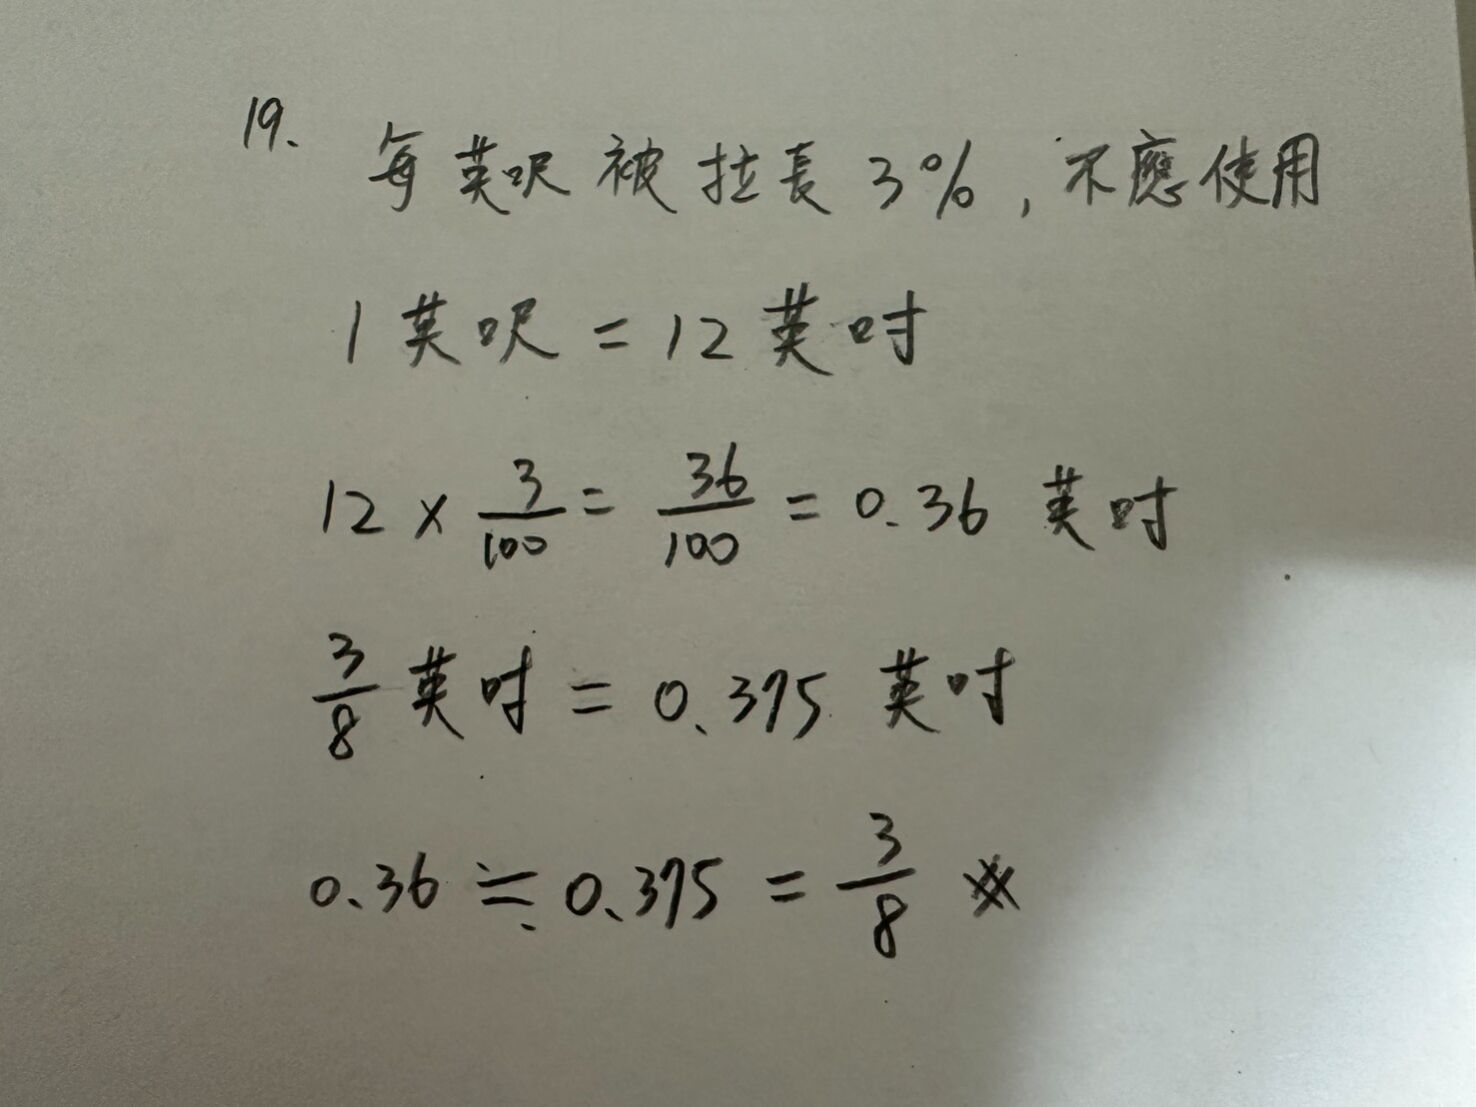 19. 每英呎被拉長3%,不應使用
1英呎=12英吋
12×3/100=36/100=0.36英吋
3/8英吋=0.375英吋
0.36≒0.375=3/8※